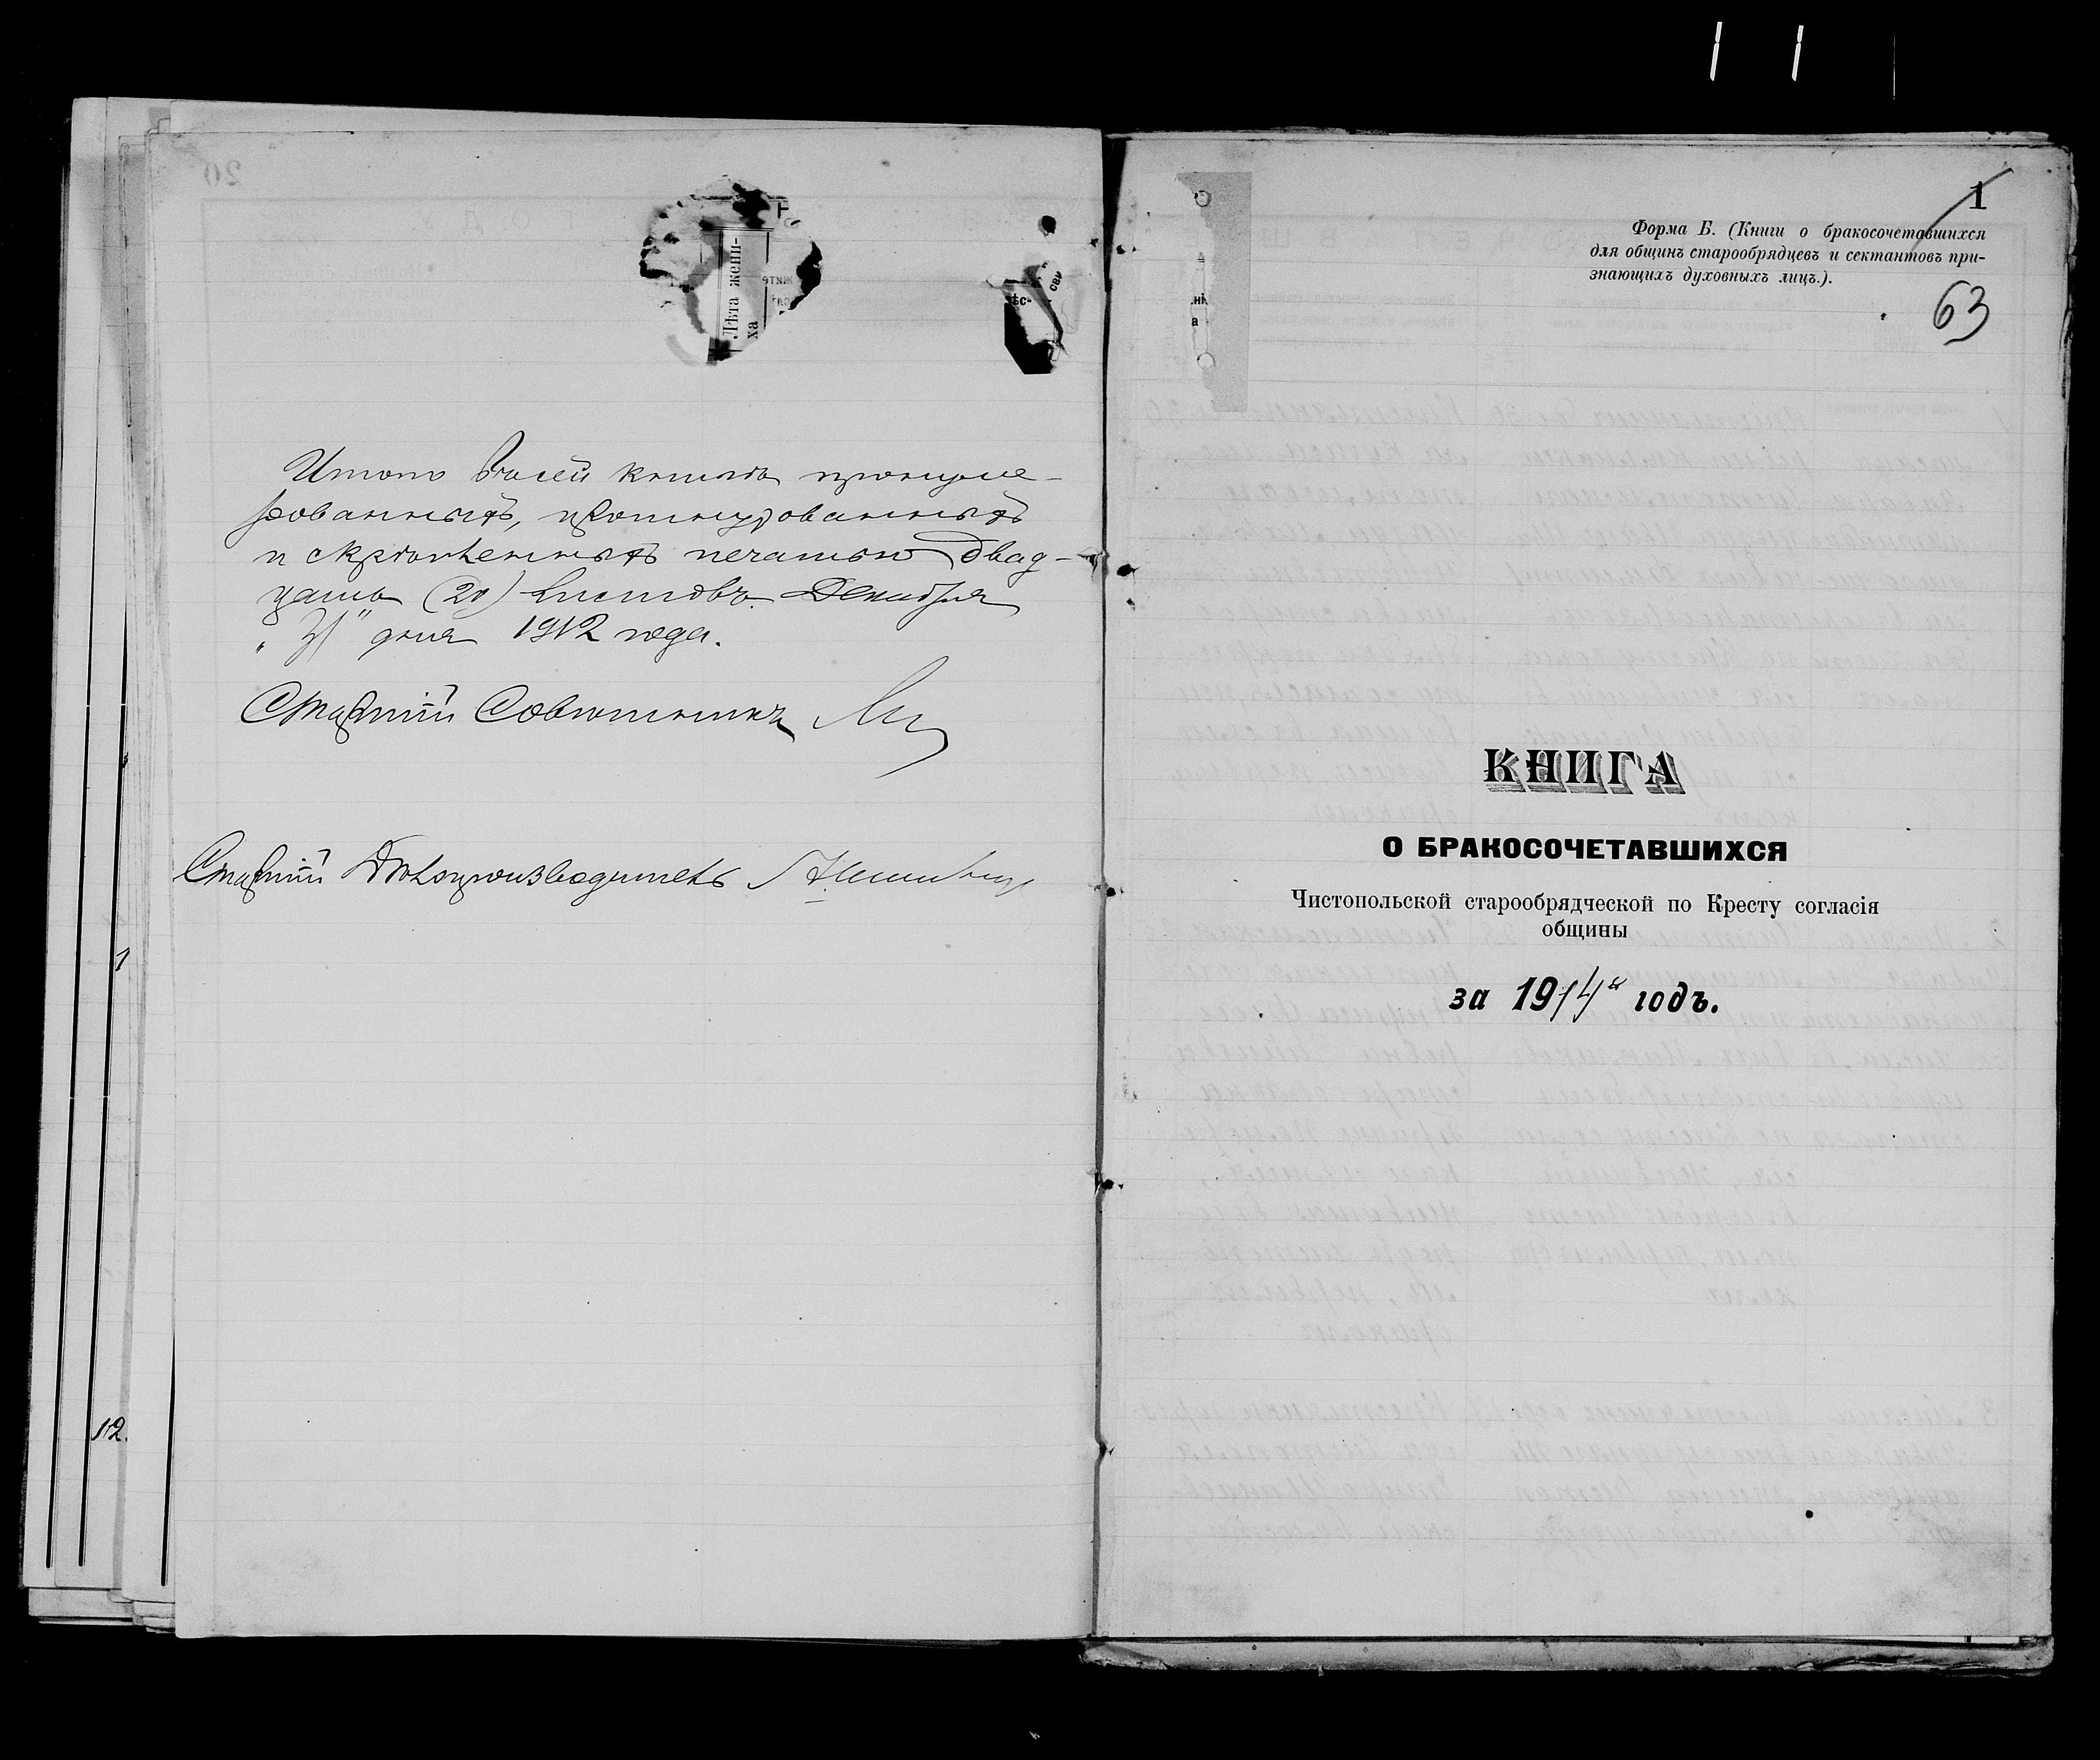 Итого въ сей книгѣ пронуме-
рованныхъ, прошнурованныхъ
и скрѣпленныхъ печатью двад-
цать (20) листовъ. Декабря
"31" дня 1912 года.
Старшій Совѣтникъ
Старшій Дѣлопроизводитель
Лѣта жени-
ха
12.
1
Форма Б. (Книги о бракосочетавшихся
для общинъ старообрядцевъ и сектантовъ при-
знающихъ духовныхъ лицъ.).
63
КНИГА
О БРАКОСОЧЕТАВШИХСЯ
Чистопольской старообрядческой по Кресту согласія
общины
за 1914й годъ.